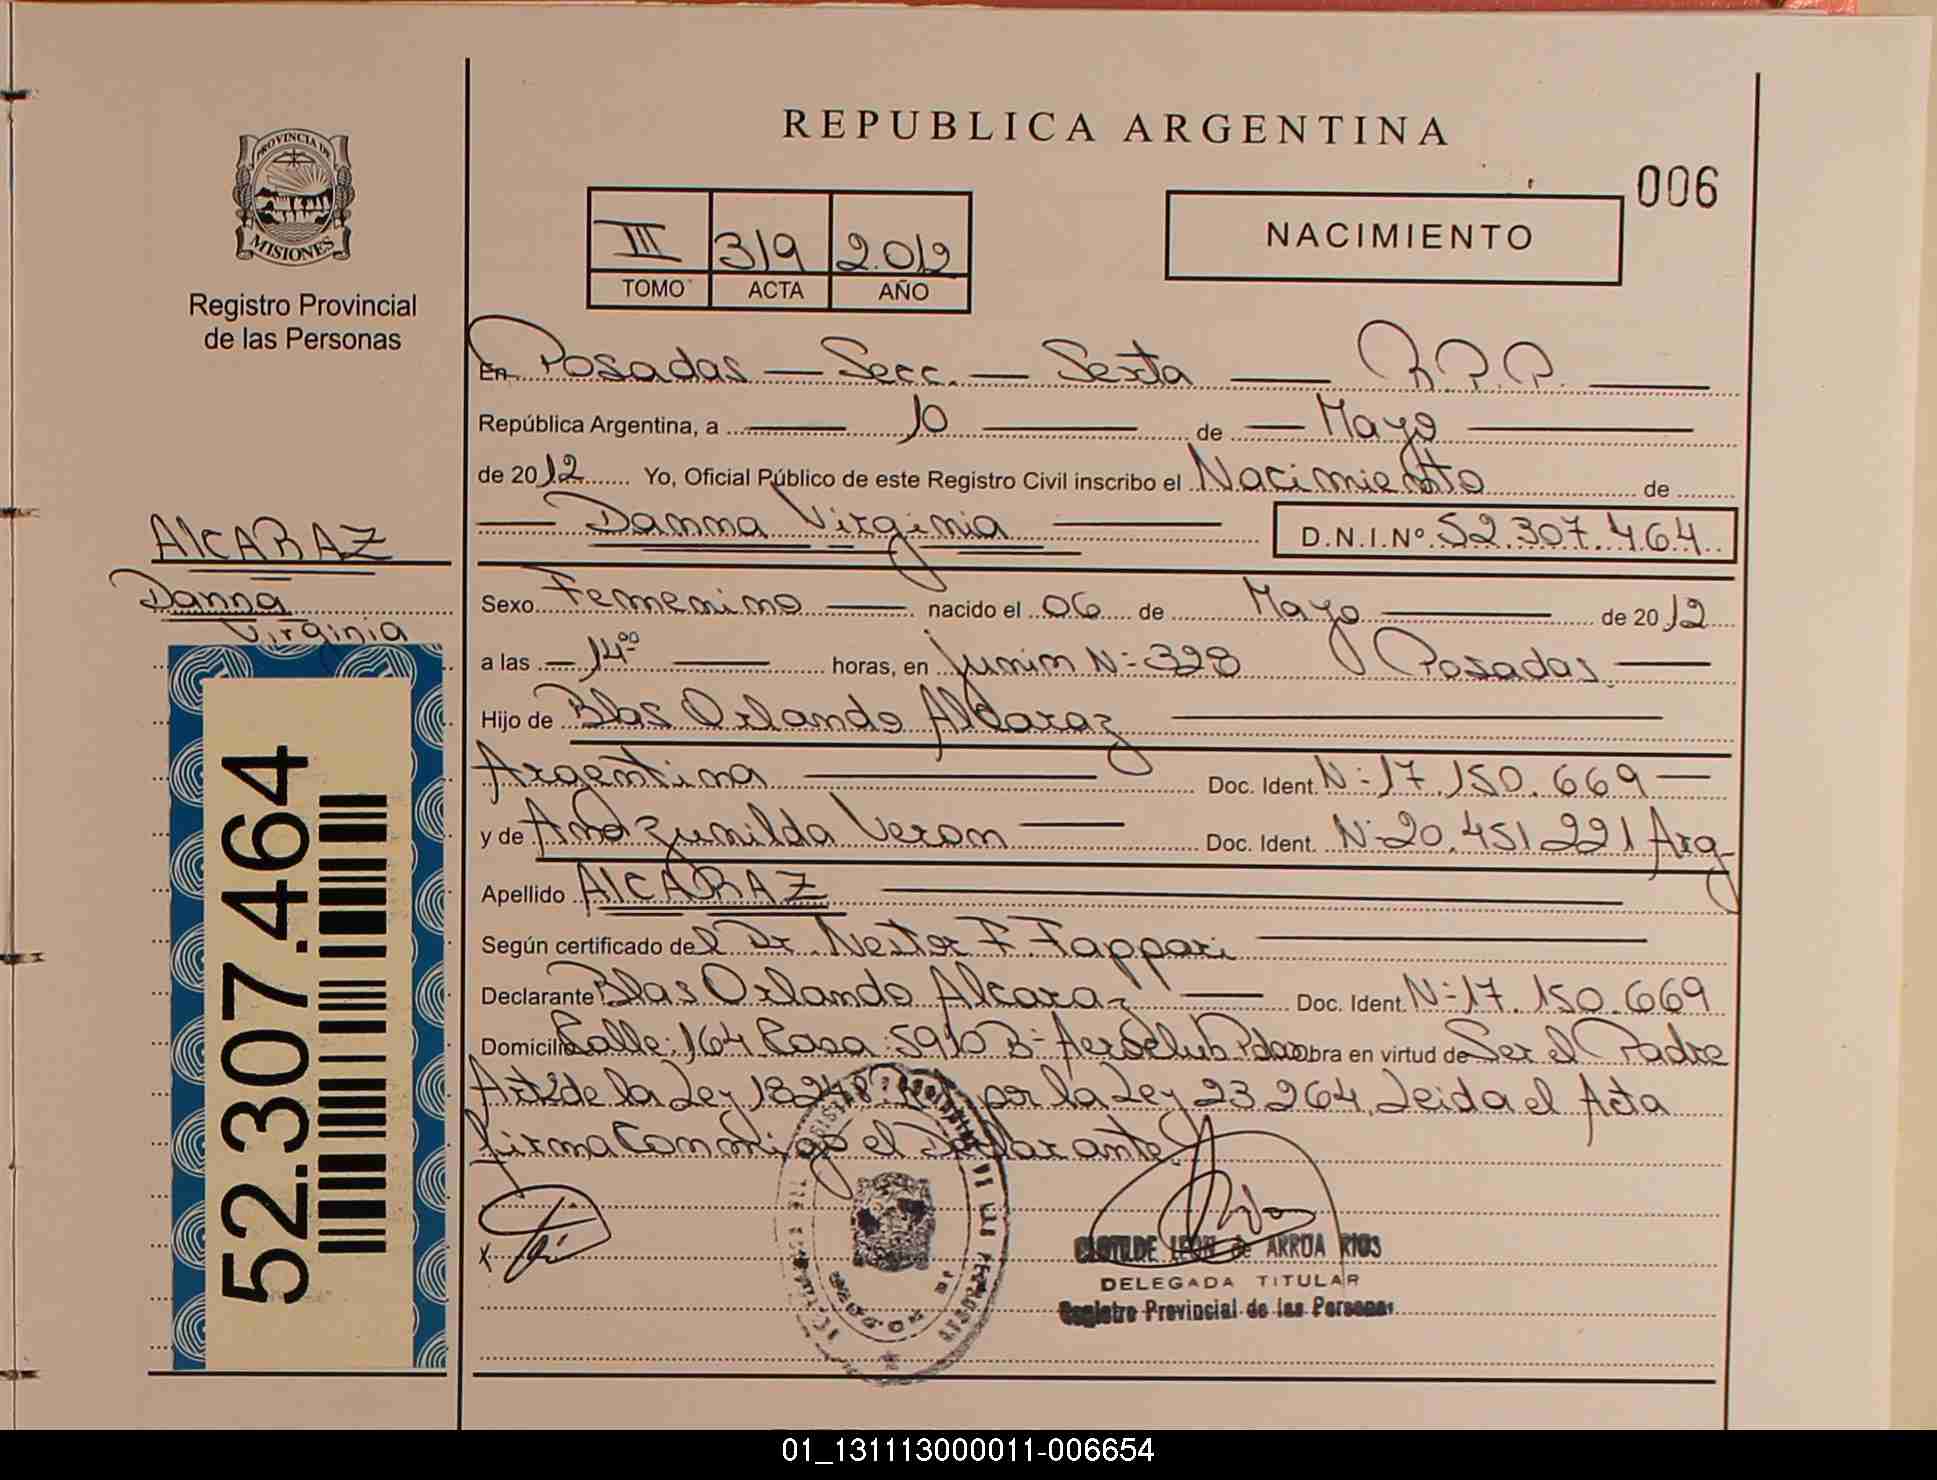 REPUBLICA ARGENTINA
006
PROVINCIA DE
MISIONES
Registro Provincial
de las Personas
III 319 2012
TOMO ACTA AÑO
NACIMIENTO
En Posadas — Secc. — Sexta — R.P.P. —
República Argentina, a — 10 — de — Mayo —
de 2012 Yo, Oficial Público de este Registro Civil inscribo el Nacimiento de
— Danna Virginia — D.N.I.Nº 52.307.464
ALCARAZ
Danna
Virginia
52.307.464
Sexo Femenino — nacido el 06 de Mayo — de 2012
a las — 14⁰⁰ — horas, en Junin N: 328 Posadas —
Hijo de Blas Orlando Alcaraz —
Argentina — Doc. Ident. N: 17.150.669 —
y de Zunilda Veron — Doc. Ident. N: 20.451.221 Arg
Apellido ALCARAZ —
Según certificado del Dr. Nestor F. Fappari —
Declarante Blas Orlando Alcaraz — Doc. Ident. N: 17.150.669
Domicilio Calle: 164 Casa: 5910 B: Aeroclub Pdas obra en virtud de Ser el Padre
Art 2 de la Ley 18248 por la Ley 23264, Leida el Acta
firma Conmigo el Declarante.
CLOTILDE LEON de ARRUA RIOS
DELEGADA TITULAR
Registro Provincial de las Personas
01_131113000011-006654